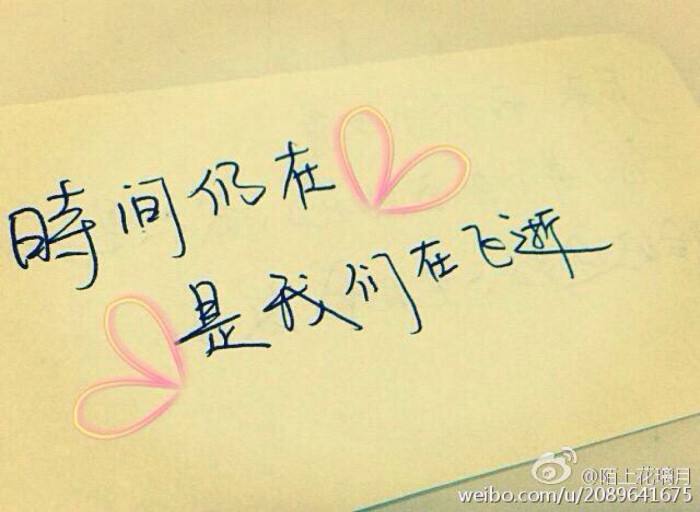 時间仍在
是我们在飞逝
@陌上花璃月
weibo.com/u/2089641675